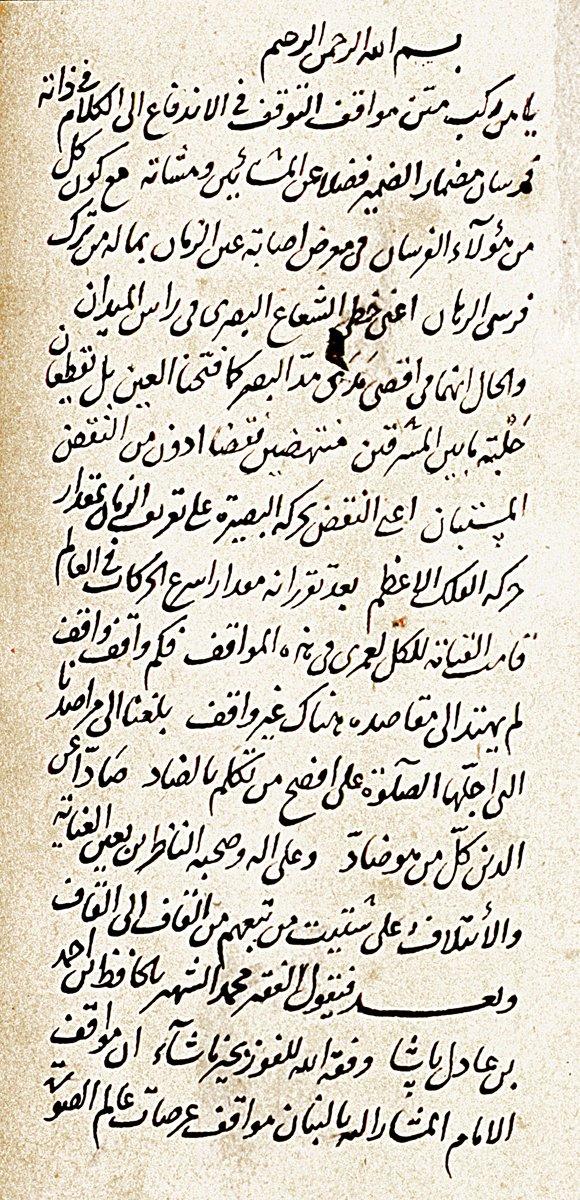 بسم الله الرحمن الرحيم
يا من ركب متن مواقف التوقف في الاندفاع الى الكلام في ذاته
فرسان مضمار الضمير فضلا عن المشائين ومشاته مع كون كل
من هؤلاء الفرسان في معرض اصابة عين الزمان بماله من ترك
فرسى الرهان اعني خطي الشعاع البصري في راس الميدان
والحال انهما في اقصى مدى مد البصر كما فتحنا العين بل تقطعان
حلبة ما بين المشرقين منتهضين نقضا ادون من النقض
المستبان اعني النقض بحركة البصيرة على تعريف الزمان بمقدار
حركة الفلك الاعظم بعد تقرر انه مقدار اسرع الحركات في العالم
قامت القيامة للكل لعمري في هذه المواقف فكم واقف واقف
لم يهتد الى مقاصده هناك غير واقف بلغنا الى مراصدنا
التي اجلها الصلوة على افصح من تكلم بالضاد صادا عن
الدين كل من هو ضاد وعلى اله وصحبه الناظرين بعين العناية
والائتلاف على شتيت من تبعهم من القاف الى القاف
وبعد فيقول الفقير محمد الشهير بالحافظ ابن احمد
بن عادل پاشا وفقه الله للفوز بخير ما شاء ان مواقف
الامام المشار اليه بالبنان مواقف عرصات عالم الصور